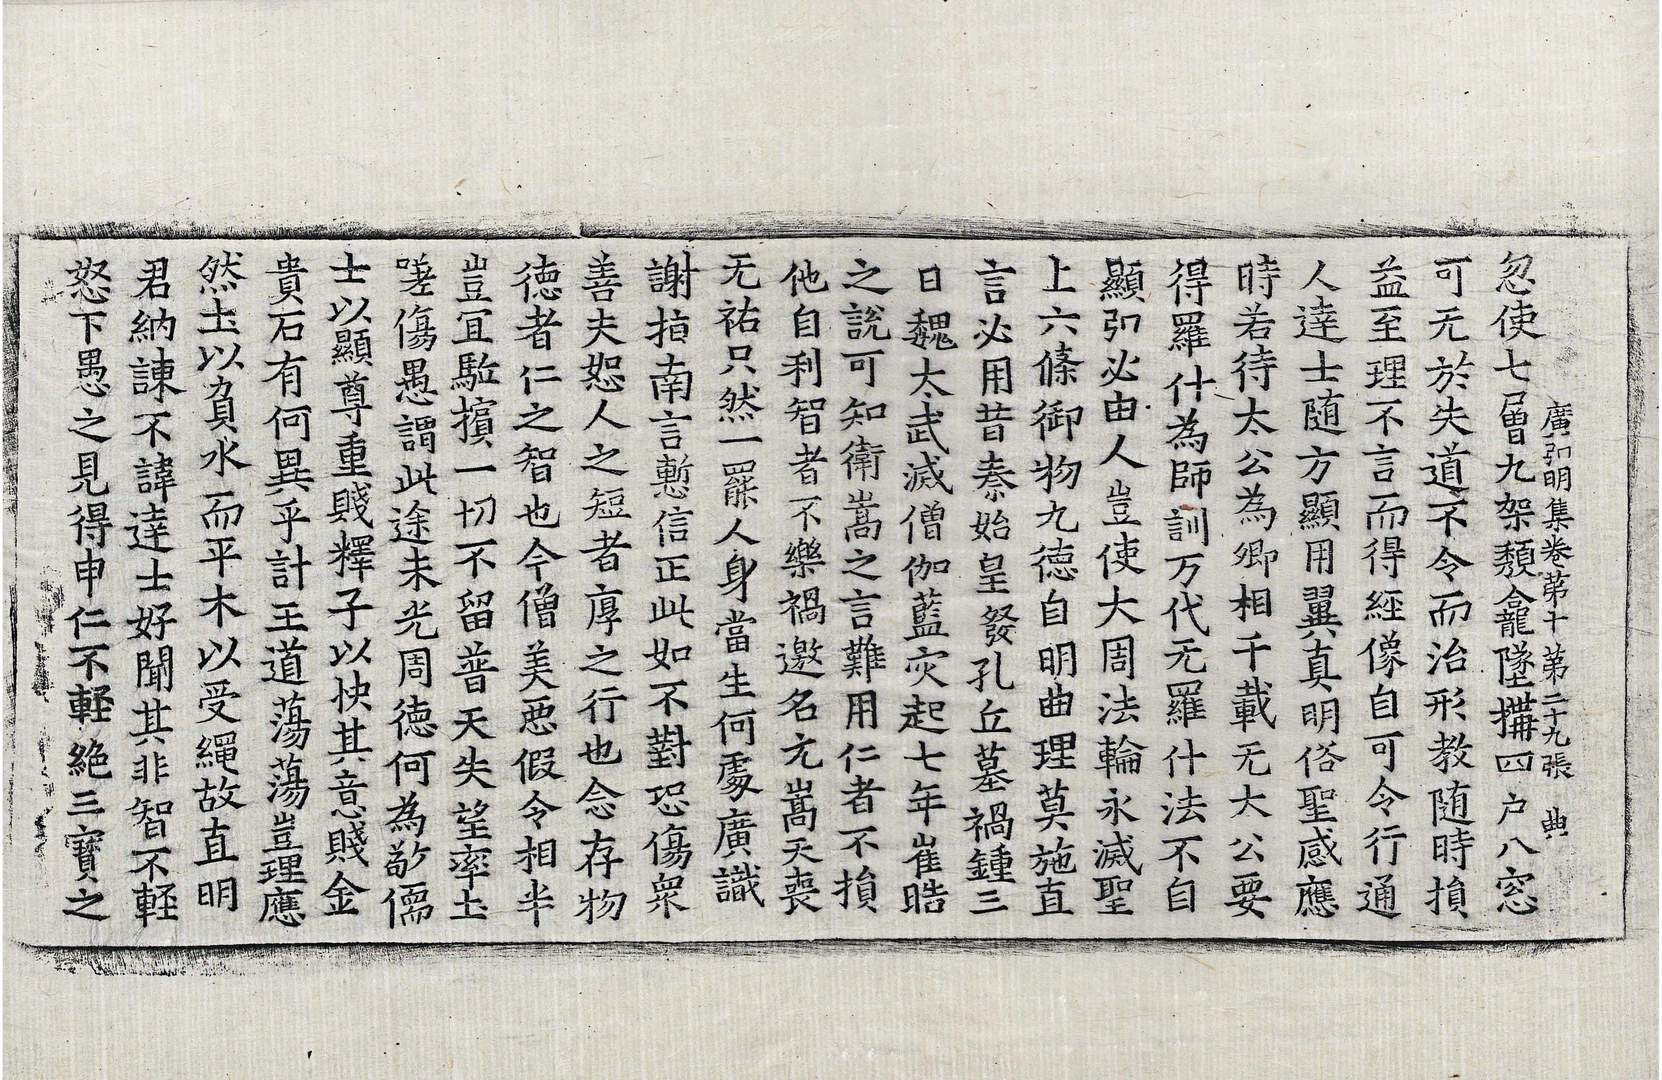 忽使七層九架頽龕墜構四户八窓
廣弘明集卷第十 第二十九張 典
可无於失道不令而治形教随時損
益至理不言而得經像自可令行通
人達士随方顯用翼真明俗聖感應
時若待太公為卿相千載无太公要
得羅什為師訓万代无羅什法不自
顯弘必由人豈使大周法輪永滅聖
上六條御物九德自明曲理莫施直
言必用昔秦始皇發孔丘墓禍鍾三
日魏太武滅僧伽藍灾起七年崔晧
之說可知衛嵩之言難用仁者不損
他自利智者不樂禍邀名元嵩天喪
无祐只然一罷人身當生何處廣識
謝指南言慙信正此如不對恐傷衆
善夫恕人之短者厚之行也念存物
德者仁之智也今僧美惡假令相半
豈冝駈擯一切不留普天失望率土
嗟傷愚謂此途未光周德何為敬儒
士以顯尊重賤釋子以快其意賤金
貴石有何異乎計王道蕩蕩豈理應
然土以負水而平木以受繩故直明
君納諫不諱達士好聞其非智不輕
怒下愚之見得申仁不輕絶三寳之